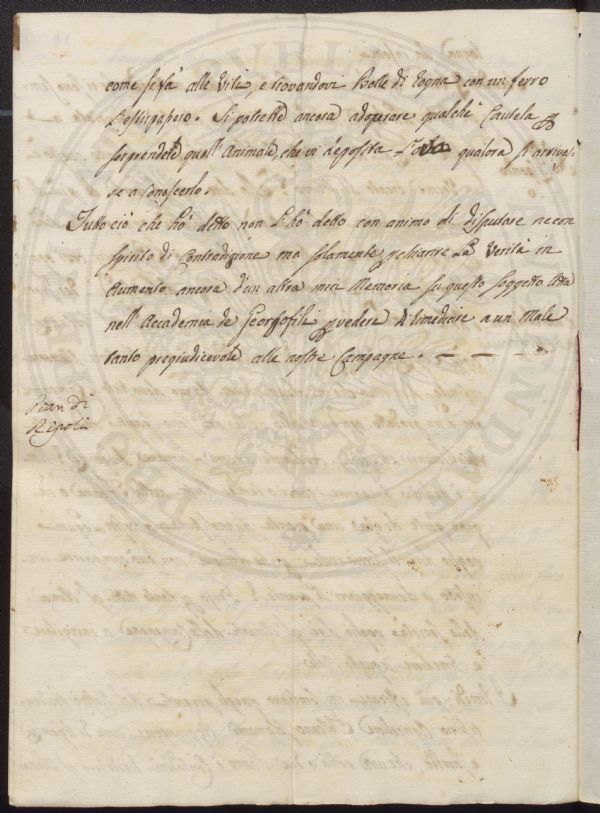 come si fà alle Viti, e trovandovi Bolle di Rogna con un ferro
L'estirpapero. Si potrebbe ancora adoperare qualche Cautela p
sorprendere quell'Animale, che vi deposita L'ova qualora si arrivas-
se a conoscerlo.
Tutto ciò che hò detto non l'hò detto con animo di disputare ne con
spirito di Contradizione ma solamente p chiarire La Verità in
aumento ancora d'un altra mia Memoria su questo soggetto letta
nell'Accademia de Georgofili p vedere di rimediare a un Male
tanto pregiudicevole alle nostre Campagne. — — —
Pian di
Ripoli